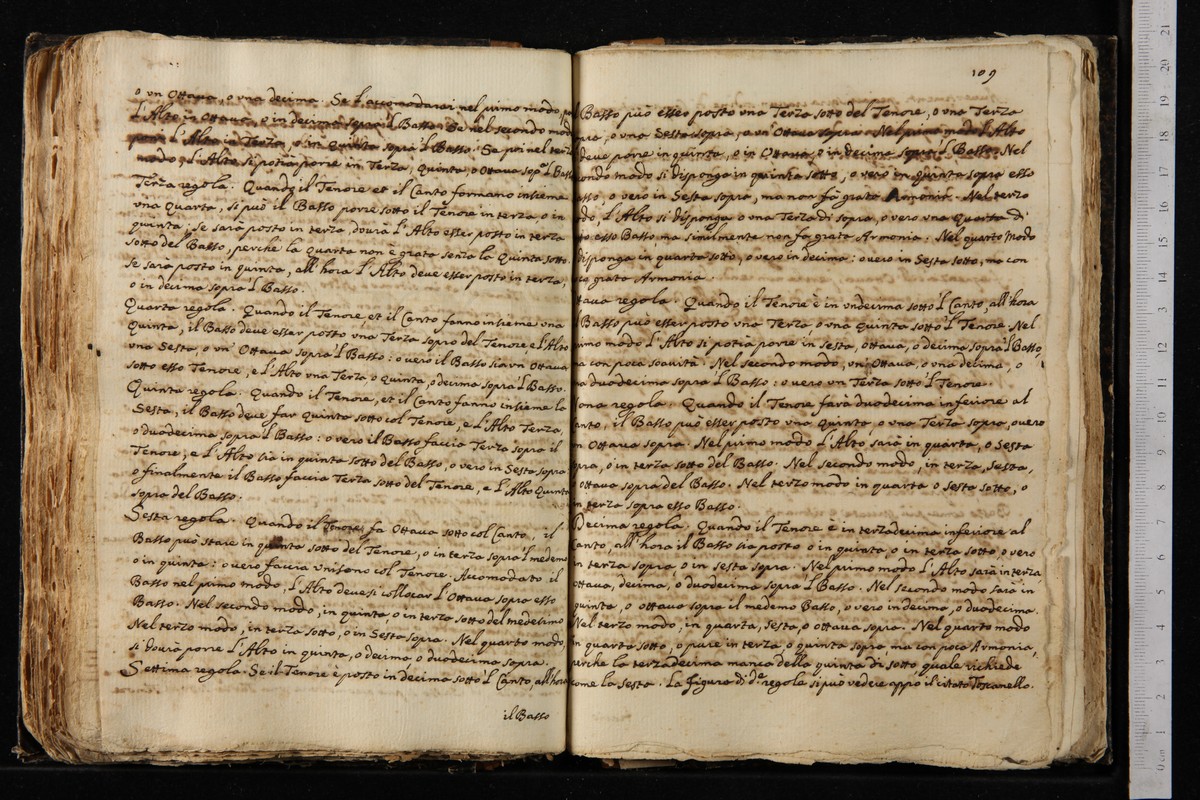 o vn Ottava, o vna decima. Se l'accomodarai nel primo modo,
l'Alto in Ottava, o in decima sopra 'l Basso. Se nel secondo modo
porai l'Alto in Terza, o in Quinta sopra 'l Basso. Se poi nel terzo
modo, l'Alto si potia porre in Terza, Quinta, o Ottava sopra 'l Basso
Terza regola. Quando il Tenore et il Canto formano insieme
vna Quarta, si può il Basso porre sotto il Tenore in terza o in
quinta; se sarà posto in terza, dourà l'Alto esser posto in terza
sotto del Basso, perche la Quarta non è grata senza la Quinta sotto.
se sarà posto in quinta, all'hora l'Alto deve esser posto in terza,
o in decima sopra 'l Basso.
Quarta regola. Quando il Tenore et il Canto fanno insieme vna
Quinta, il Basso deve esser posto vna Terza sopra del Tenore, e l'Alto
vna Sesta, o vn' Ottava sopra 'l Basso: o uero il Basso sia vn Ottava
sotto esso Tenore, e l'Alto vna Terza o Quinta, o decima sopra 'l Basso.
Quinta regola. Quando il Tenore, et il Canto fanno insieme la
Sesta, il Basso deve far Quinta sotto col Tenore, e l'Alto Terza,
o duodecima sopra 'l Basso: o vero il Basso facia Terza sopra il
Tenore, e l'Alto sia in quinta sotto del Basso, o vero in Sesta sopra
o finalmente il Basso faccia Terza sotto del Tenore, e l'Alto Quinta
sopra del Basso.
Sesta regola. Quando il Tenore fa Ottava sotto col Canto, il
Basso può stare in quinta sotto del Tenore, o in terza sopra 'l medemo
o in quinta: o uero faccia vnisono col Tenore. Acomodato il
Basso nel primo modo, l'Alto devesi collocar l'Ottava sopra esso
Basso. Nel secondo modo, in quinta, o in terza sotto del medesimo
Nel terzo modo, in terza sotto, o in Sesta sopra. Nel quarto modo,
si dourà porre l'Alto in quinta, o decima o duodecima sopra.
Settima regola. Se il Tenore è posto in decima sotto 'l Canto, all'hora
il Basso
109
Basso può esser posto vna Terza sotto del Tenore, o vna Terza
o vna Sesta sopra, o vn' Ottava sopra. Nel primo modo l'Alto
deve porre in quinta, o in Ottava, o in decima sopra 'l Basso. Nel
modo si disponga in quinta sotto, o vero in quinta sopra esso
o vero in Sesta sopra, ma non fà grata Armonia. Nel terzo
l'Alto si disponga o vna Terza di sopra, o vero vna Quarta di
esso Basso ma similmente non fa grata Armonia. Nel quarto modo
disponga in quarta sotto, o vero in decima: o uero in Sesta sotto, ma con
grata Armonia.
regola. Quando il Tenore è in vndecima sotto 'l Canto, all'hora
Basso può esser posto vna Terza, o vna Quinta sotto 'l Tenore. Nel
modo l'Alto si potia porre in sesta, ottava, o decima sopra 'l Basso,
con poca soavità. Nel secondo modo, vn' Ottava, o vna decima, o
duodecima sopra 'l Basso: o uero vn Terza sotto 'l Tenore.
regola. Quando il Tenore farà duodecima inferiore al
Canto, il Basso può esser posto vna Quinta, o vna Terza sopra, o uero
Ottava sopra. Nel primo modo l'Alto sarà in quarta, o Sesta
o in terza sotto del Basso. Nel secondo modo, in terza, sesta,
ottava sopra del Basso. Nel terzo modo in quarta o sesta sotto, o
in terza sopra esso Basso.
Decima regola. Quando il Tenore è in terzadecima inferiore al
Canto, all'hora il Basso sia posto o in quinta, o in terza sotto, o vero
in terza sopra, o in sesta sopra. Nel primo modo l'Alto sarà in terza,
ottava, decima, o duodecima sopra 'l Basso. Nel secondo modo sara in
quinta, o ottava sopra il medemo Basso, o vero in decima, o duodecima.
Nel terzo modo, in quarta, sesta, o ottava sopra. Nel quarto modo
in quarta sotto, o pure in terza, o quinta sopra ma con poca Armonia,
perche la terzadecima manca della quinta di sotto quale richiede
come la sesta. La figura di d.ª regola si può vedere appo il citato Toscanello.